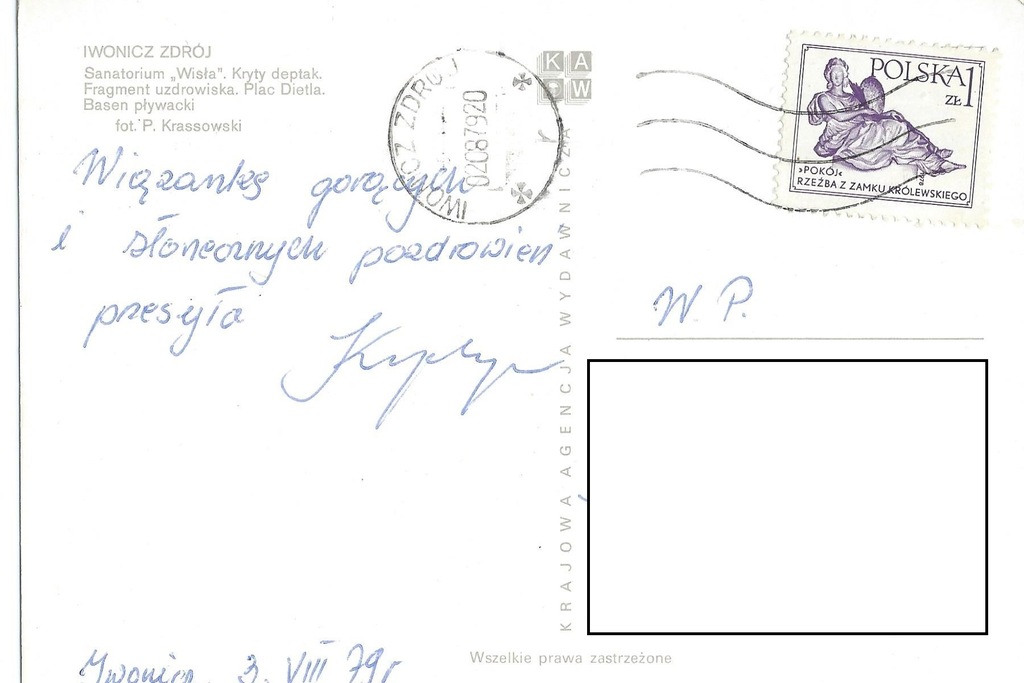 IWONICZ ZDRÓJ
Sanatorium „Wisła". Kryty deptak.
Fragment uzdrowiska. Plac Dietla.
Basen pływacki
fot. P. Krassowski
IWONICZ ZDRÓJ
02087920
KAW
POLSKA 1
ZŁ
›POKÓJ‹
RZEŹBA Z ZAMKU KRÓLEWSKIEGO
Wiązankę gorących
i słonecznych pozdrowien
przesyła
W. P.
KRAJOWA AGENCJA WYDAWNICZA
Iwonicz, 3. VIII 79r
Wszelkie prawa zastrzeżone